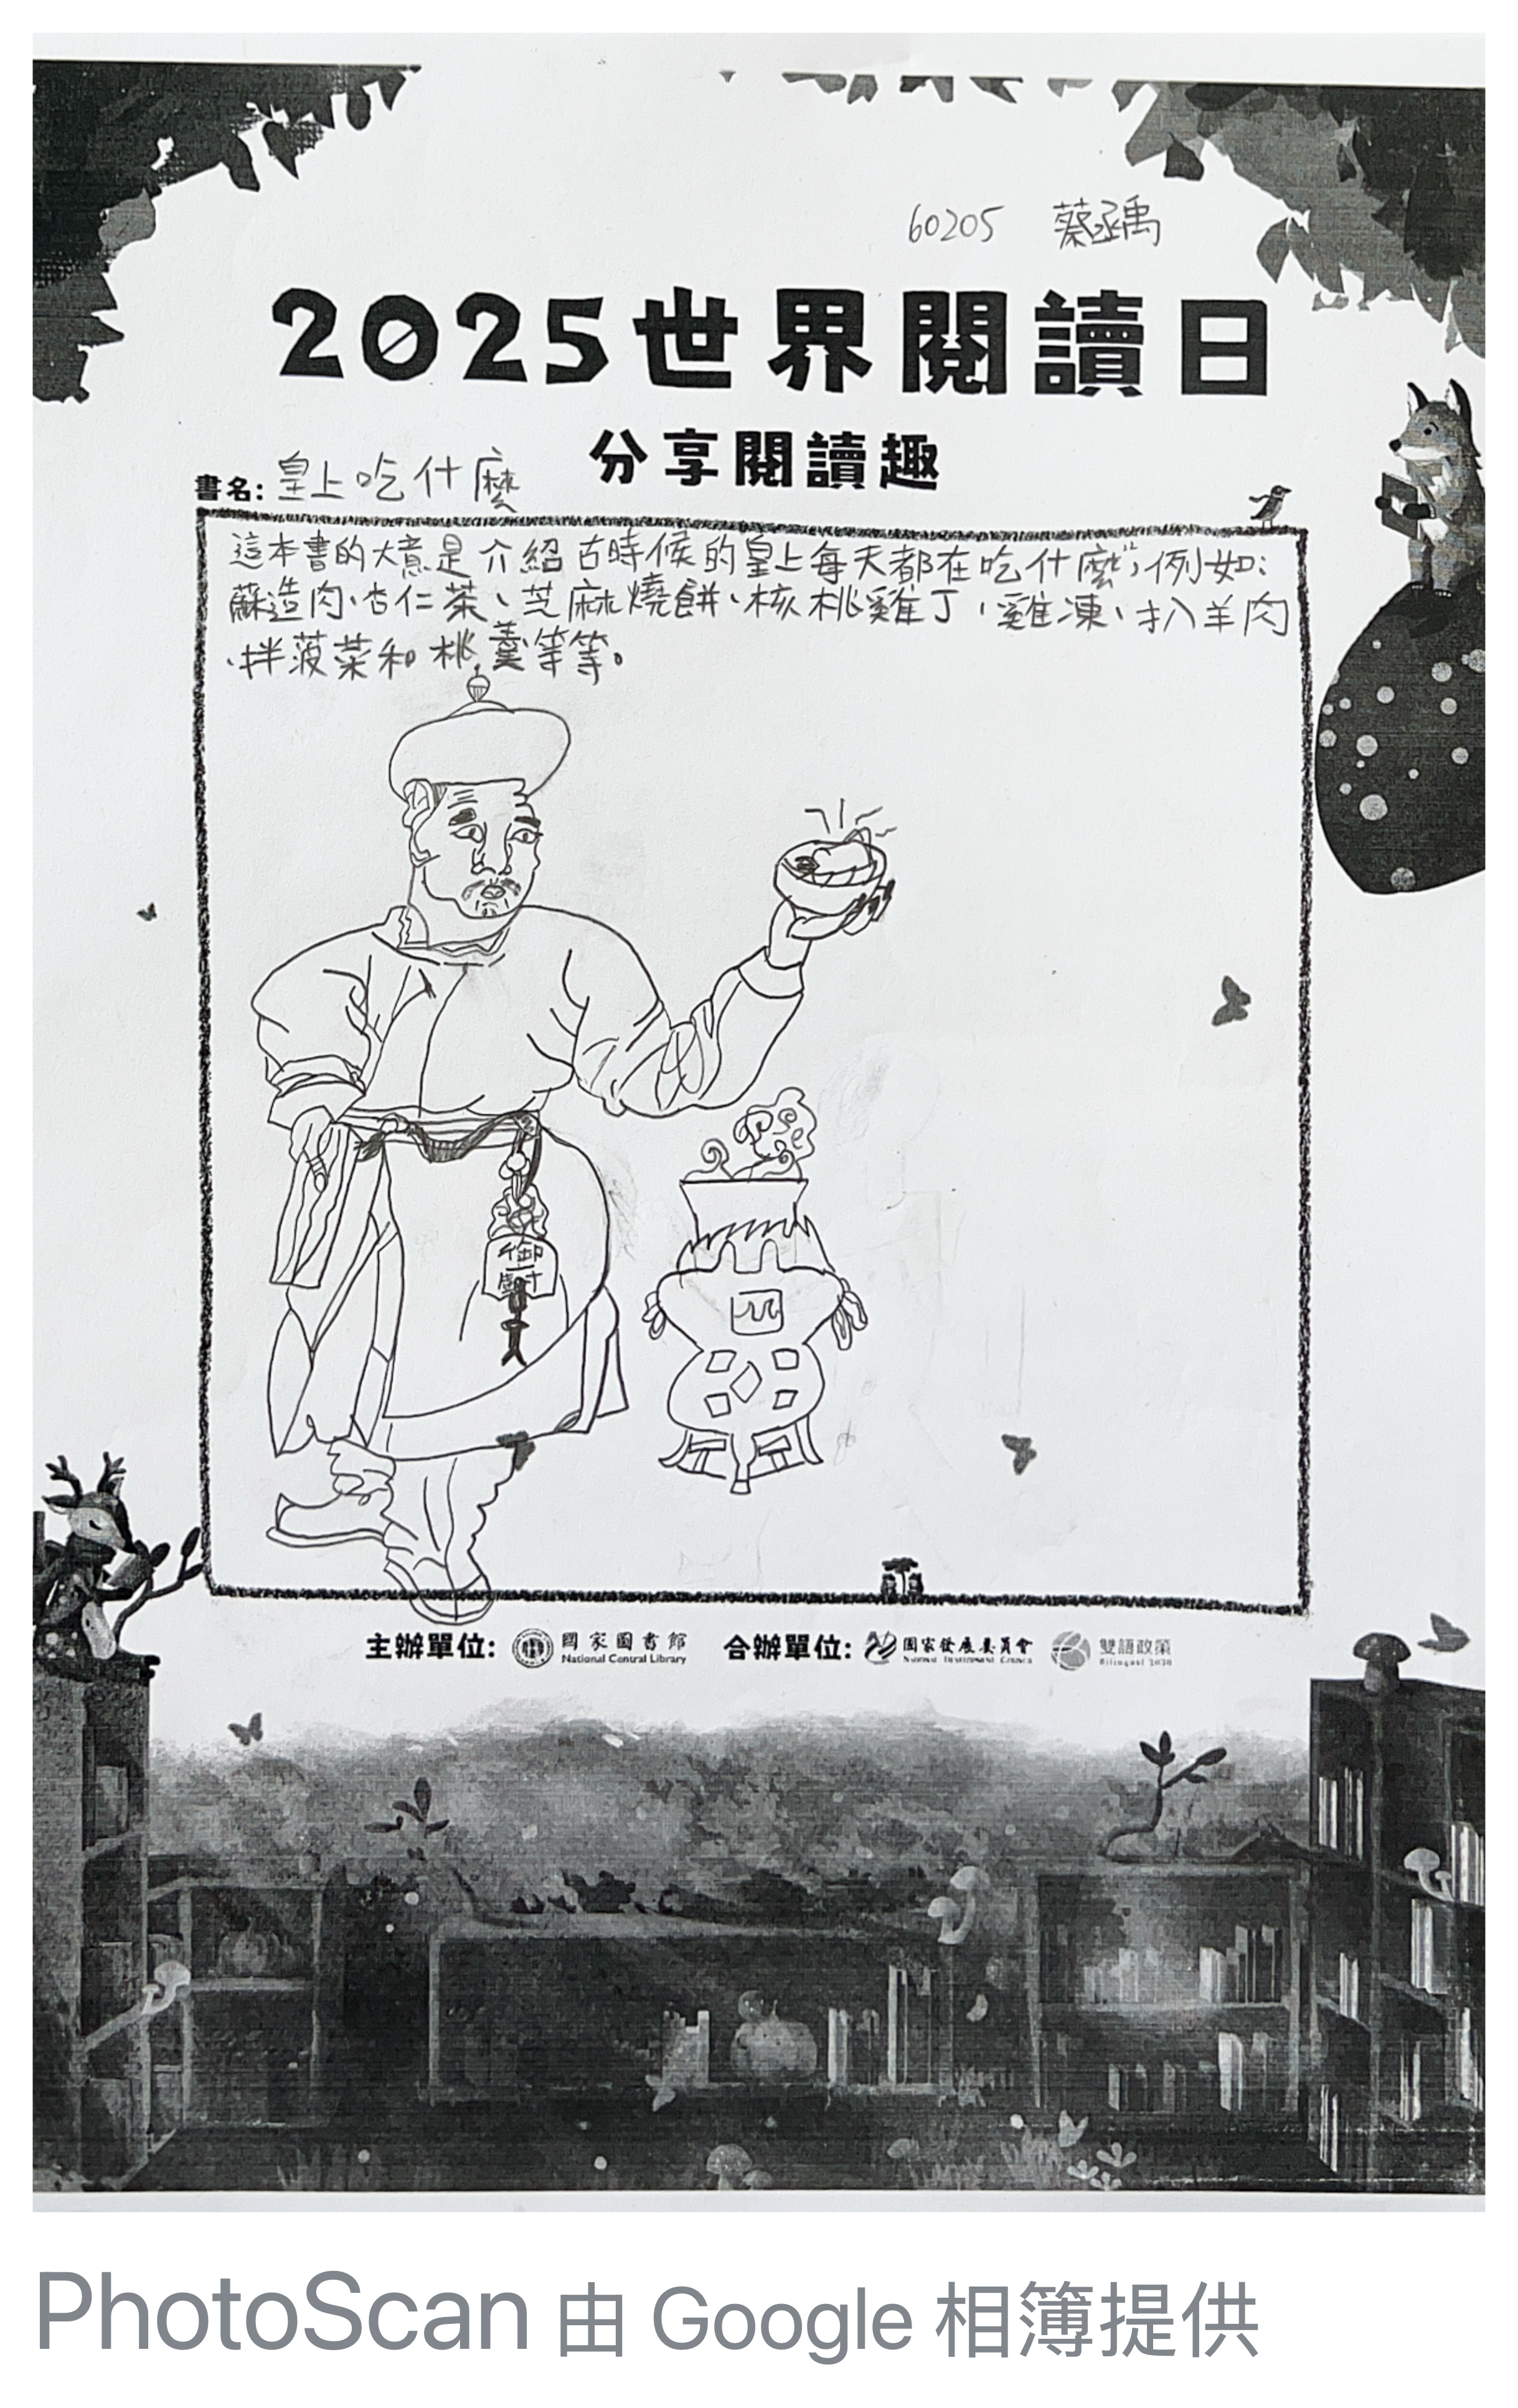 60205 蔡丞禹
2025世界閱讀日
分享閱讀趣
書名: 皇上吃什麼
這本書的大意是介紹古時候的皇上每天都在吃什麼,例如:
蘇造肉、杏仁茶、芝麻燒餅、核桃雞丁、雞凍、扒羊肉
、拌菠菜和桃羹等等。
御
主辦單位: 國家圖書館 National Central Library 合辦單位: 國家發展委員會 NATIONAL DEVELOPMENT COUNCIL 雙語政策 Bilingual 2030
PhotoScan 由 Google 相簿提供